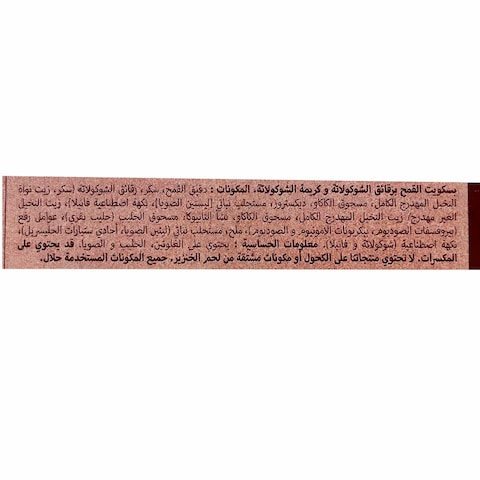 بسكويت القمح برقائق الشوكولاتة و كريمة الشوكولاتة، المكونات : دقيق القمح، سكر، رقائق الشوكولاتة (سكر، زيت نواة
النخيل المهدرج الكامل، مسحوق الكاكاو، ديكستروز، مستحلب نباتي (ليسيتين الصويا)، نكهة اصطناعية فانيلا)، زيت النخيل
الغير مهدرج/ زيت النخيل المهدرج الكامل، مسحوق الكاكاو، نشأ التابيوكا، مسحوق الحليب (حليب بقري)، عوامل رفع
(بيروفسفات الصوديوم، بيكربونات الأمونيوم و الصوديوم)، ملح، مستحلب نباتي (ليثين الصويا، أحادي ستيارات الجليسريل)،
نكهة اصطناعية (شوكولاتة و فانيلا). معلومات الحساسية : يحتوي على الغلوتين، الحليب و الصويا. قد يحتوي على
المكسرات. لا تحتوي منتجاتنا على الكحول أو مكونات مشتقة من لحم الخنزير. جميع المكونات المستخدمة حلال.